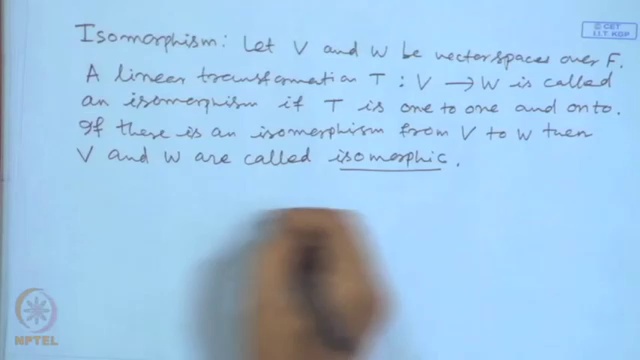 © CET
I.I.T. KGP
Isomorphism: Let V and W be vectorspaces over F.
A linear transformation T : V → W is called
an isomorphism if T is one to one and onto.
If there is an isomorphism from V to W then
V and W are called isomorphic.
NPTEL